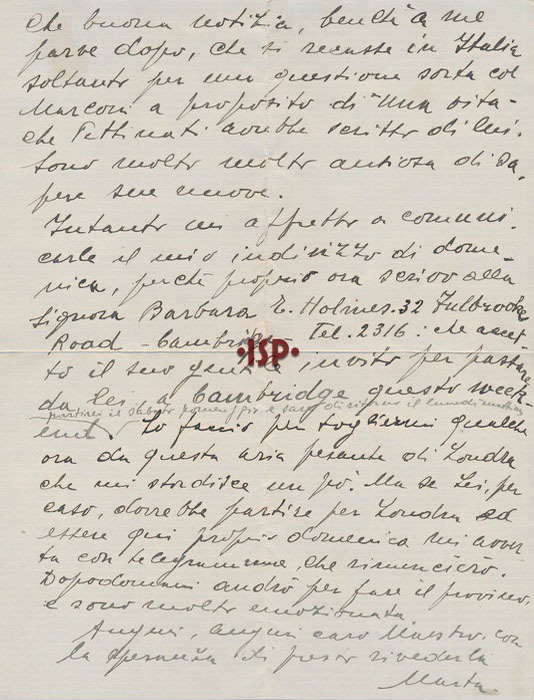 che buona notizia, benchè a me
parve dopo, che si recasse in Italia
soltanto per una questione sorta col
Marconi a proposito di "Una vita"
che Pettinati avrebbe scritto di lui.
Sono molto molto ansiosa di sa-
pere sue nuove.
Intanto mi affretto a comuni-
carle il mio indirizzo di dome-
nica, perchè proprio ora scrivo alla
Signora Barbara E. Holmes. 32 Fulbrooke
Road - Cambridge Tel. 2316: che accet-
to il suo gentile invito per passare
da Lei a Cambridge questo week-
partirei il sabato pomeriggio e sarei di ritorno il lunedì mattina
end. Lo faccio per togliermi qualche
ora da questa aria pesante di Londra
che mi stordisce un pò. Ma se Lei, per
caso, dovrebbe partire per Londra ed
essere qui proprio domenica mi avver-
ta con telegramma, che rinuncierò.
Dopodomani andrò per fare il provino.
e sono molto emozionata
Auguri, auguri caro Maestro, con
la speranza di presto rivederla
Marta.
•ISP•